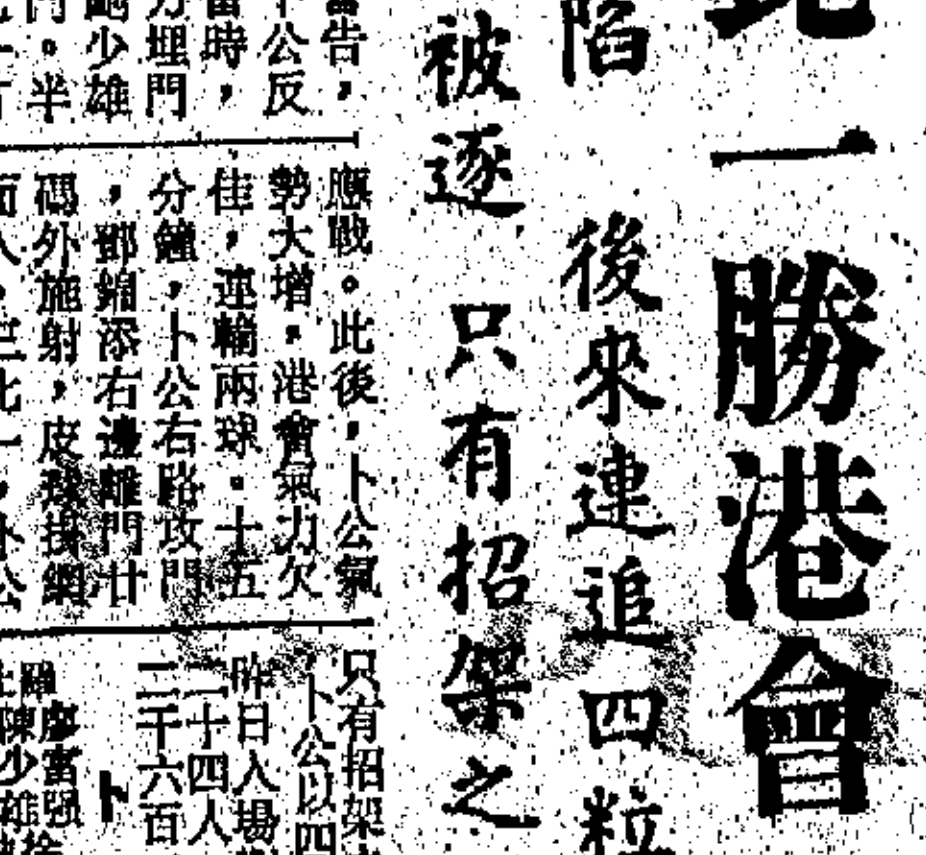 比一勝港會
陷　後來連追四粒
被逐　只有招架之
告，
公反
當時，
埋門
少雄
門。半
應戰。此後，卜公氣
勢大增，港會氣力欠
佳，連輸兩球。十五
分鐘，卜公右路攻門
，鄧錦添右邊離門廿
碼外施射，皮球掛網
只有招架
，卜公以四
昨日入場
二十四人
三千六百
卜
廖富强
陳少雄